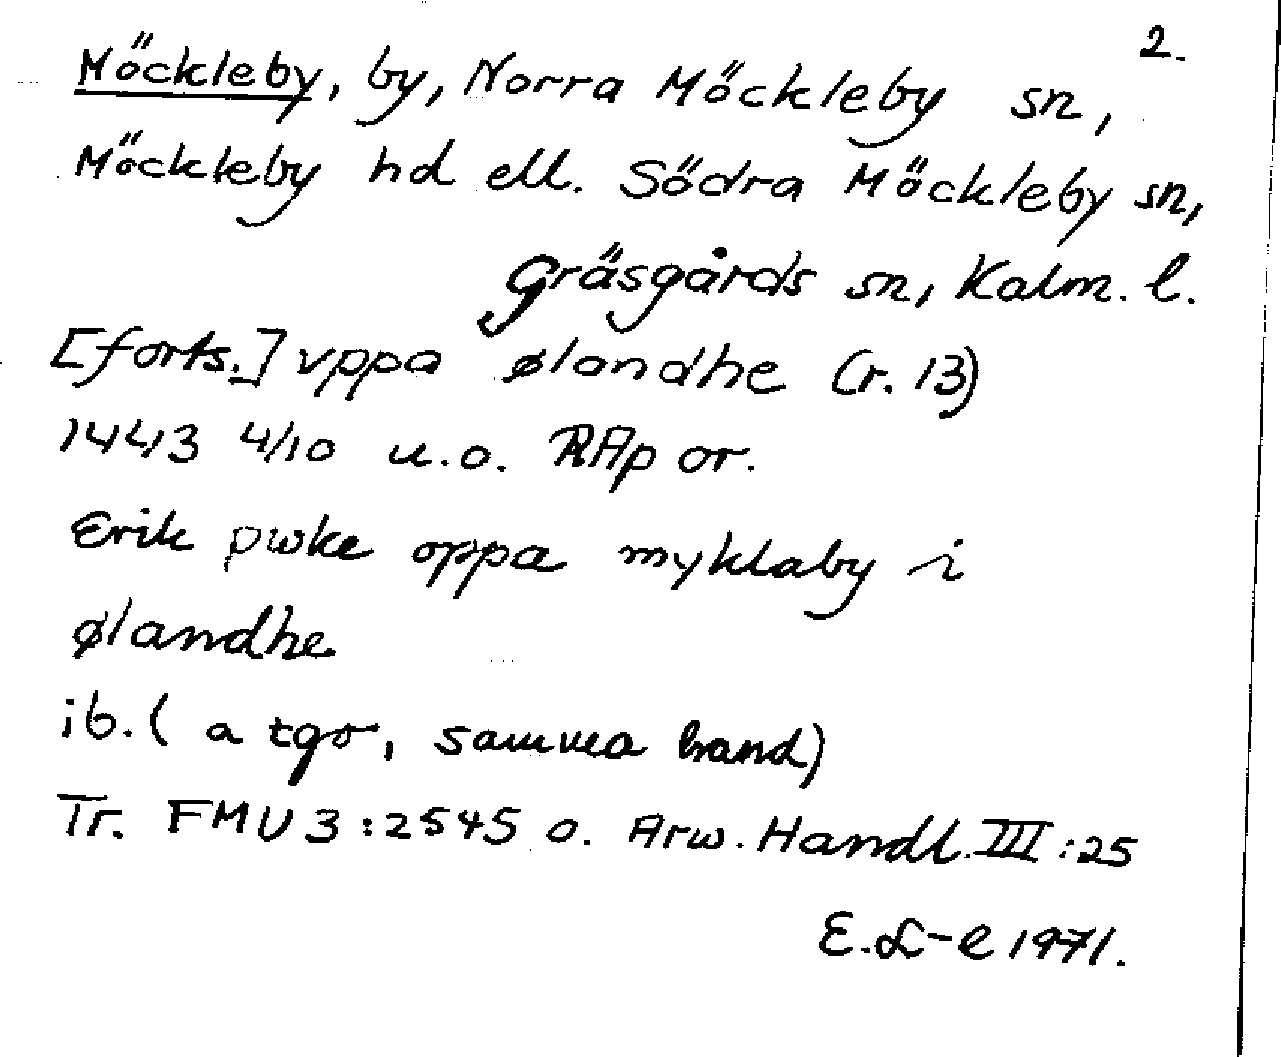 2.
Möckleby, by, Norra Möckleby sn,
Möckleby hd ell. Södra Möckleby sn,
Gräsgårds sn, Kalm. l.
[forts.] vppa ølandhe (r. 13)
1443 4/10 u.o. RAp or.
Erik pwke oppa myklaby i
ølandhe
ib. ( a tgo, samma hand)
Tr. FMU 3:2545 o. Arw. Handl. III:25
E.L-e 1971.